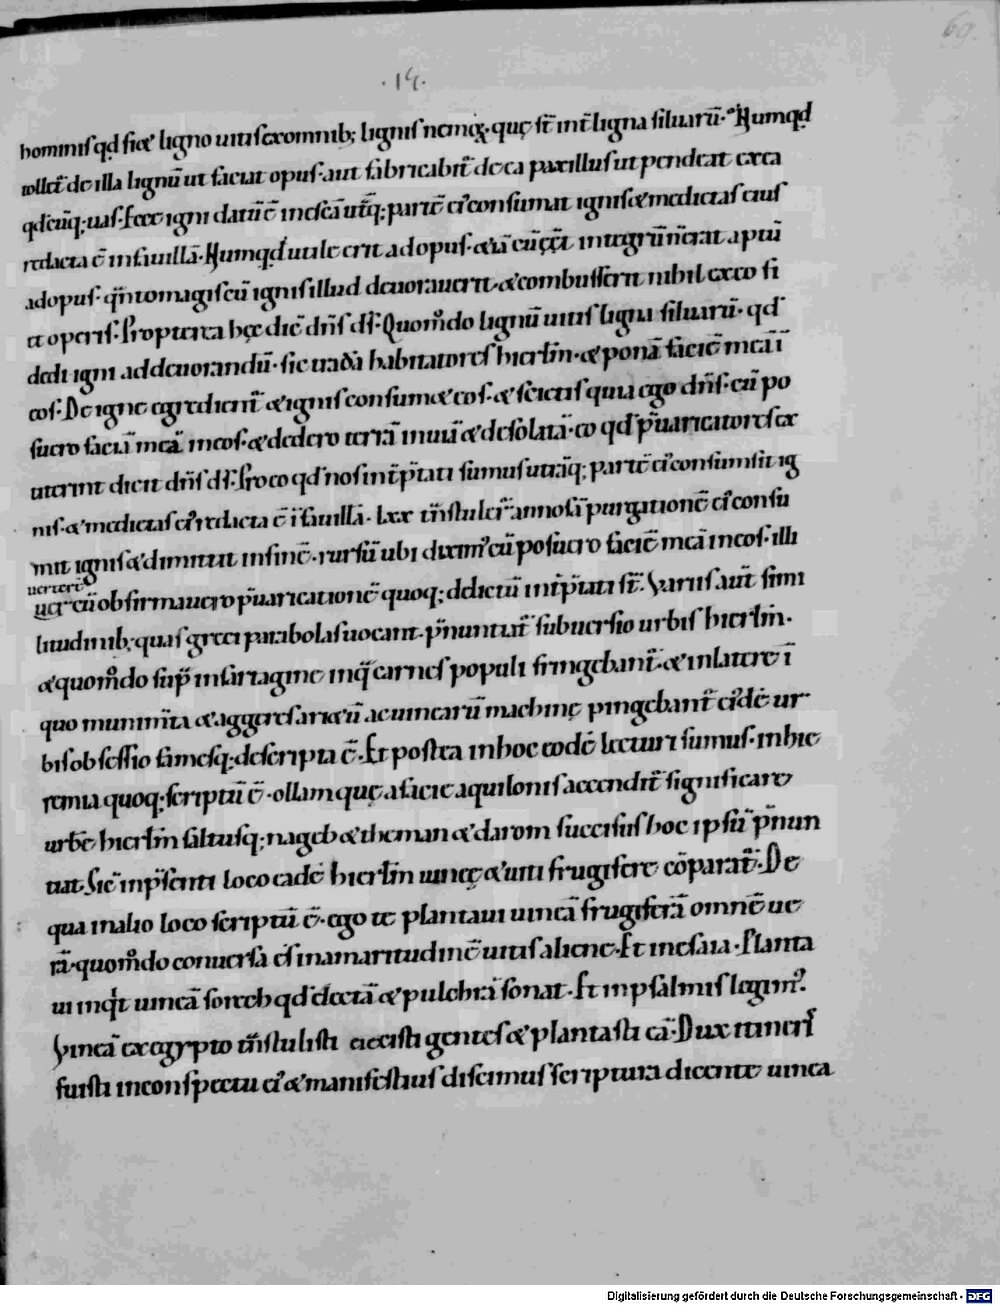 69.
· 14 ·
hominis qd̄ fiet ligno uitis ex omnib; lignis nemoꝝ. quę st̄ int̄ ligna siluarū. Numqd̄
tollet̄ de illa lignū ut faciat opus. aut fabricabit̄ de ea paxillus ut pendeat ex ea
qdcūq; uas. Ecce igni datū ē in escā utrāq; partē ei consumat ignis & medietas eius
redacta ē in fauillā. Numqd utile erit ad opus. &iā cū eēt integrū n̄ erat aptū
ad opus. qn̄to magis cū ignis illud deuorauerit. & combusserit nihil ex eo fi
et operis. Propterea hęc dic̄ dn̄s d̄s. Quom̊do lignū uitis ligna siluarū. qd
dedi igni ad deuorandū. sic tradā habitatores hierl̄m. & ponā faciē meā ī
eos. De igne egredient̄ & ignis consumet eos. & scietis quia ego dn̄s. cū po
suero faciē meā in eos. & dedero terrā inuiā & desolatā. eo qd p̄uaricatores ex
titerint dicit dn̄s d̄s. Pro eo qd nos int̄p̄tati sumus utrāq; partē ei consumsit ig
nis. & medietas ei redacta ē ī fauillā. lxx tn̄stuler̄ annosā purgationē ei consu
mit ignis & dimittit in finē. rursū ubi dixim᾿ cū posuero faciē meā in eos. illi
uerterē
uer cū obfirmauero p̄uaricationē quoq; ddictū int̄p̄tati st̄. Variis aut̄ simi
litudinib; quas greci parabolas uocant. p̄nuntiat̄ subuersio urbis hierl̄m.
& quom̊do sup̄ in sartagine in q̄ carnes populi frigebant̄. & in latere ī
quo munim̄ta & aggeres arietū ac uinearū machinę pingebant̄ ei᾿dē ur
bis obsessio famesq; descripta ē. Et postea in hoc eodē lecturi sumus. in hie
remia quoq; scriptū ē. ollam quę a facie aquilonis accendit̄ significare
urbē hierl̄m saltusq; nageb & theman & darom succisus hoc ipsū p̄nun
tiat. Sic̄ in p̄senti loco eadē hierl̄m uineę & uiti frugifere cōparat̄. De
qua in alio loco scriptū ē. ego te plantaui uineā frugiferā omnē ue
rā. quom̊do conuersa es in amaritudinē uitis aliene. Et in esaia. Planta
ui inqt uineā sorech qd electā & pulchrā sonat. Et in psalmis legim᾿.
Vineā ex egypto tn̄stulisti eiecisti gentes & plantasti eā. Dux itineris
fuisti in conspectu ei & manifestius discimus scriptura dicente uinea
Digitalisierung gefördert durch die Deutsche Forschungsgemeinschaft - DFG